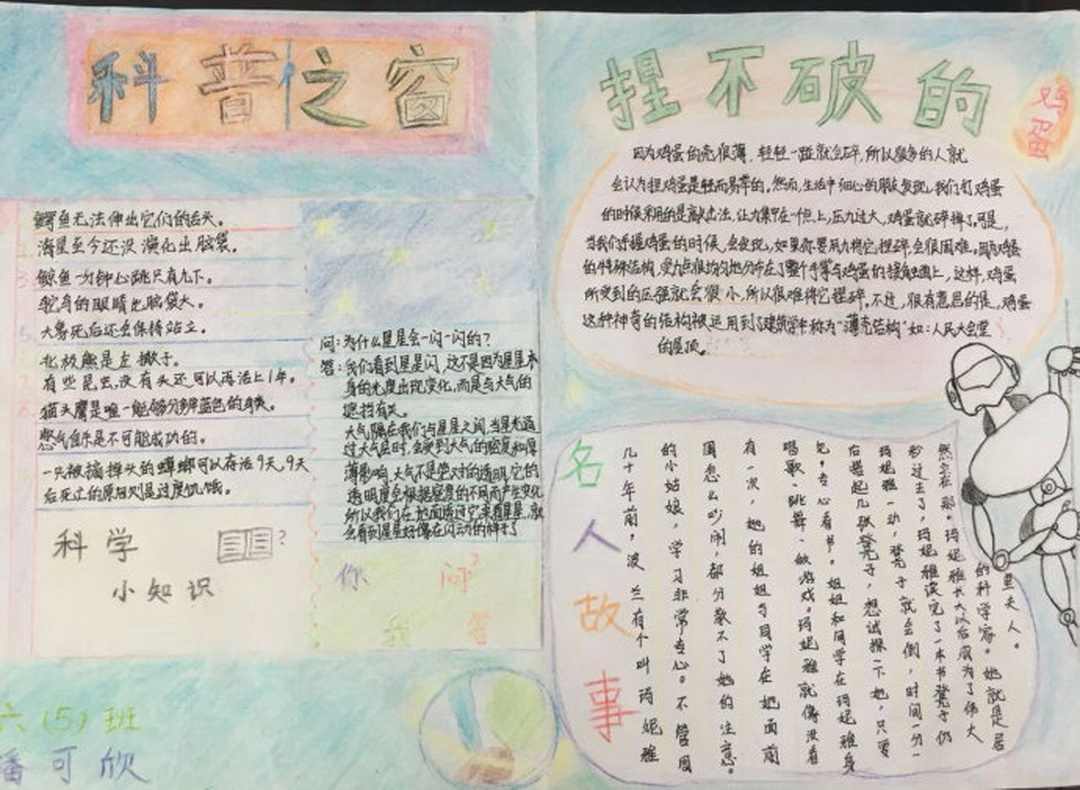 科普之窗
鳄鱼无法伸出它们的舌头。
海星至今还没演化出脑袋。
鲸鱼一分钟心跳只有九下。
鸵鸟的眼睛比脑袋大。
大象死后还会保持站立。
北极熊是左撇子。
有些昆虫,没有头还可以再活上1年。
猫头鹰是唯一能够分辨蓝色的鸟类。
憋气自杀是不可能成功的。
一只被摘掉头的蟑螂可以存活9天,9天
后死亡的原因则是过度饥饿。
科学
小知识
?
问:为什么星星会一闪一闪的?
答:我们看到星星闪,这不是因为星星本
身的光度出现变化,而是与大气的
遮挡有关。
大气隔在我们与星星之间,当星光通
过大气层时,会受到大气的密度和厚
薄影响,大气不是绝对的透明,它的
透明度会根据密度的不同而产生变化
所以我们在地面透过它来看星星,就
会看到星星好像在闪动的样子了
你问?
我答
六(5)班
潘可欣
捏不破的
鸡蛋
因为鸡蛋的壳很薄,轻轻一碰就会碎,所以很多的人就
会认为捏鸡蛋是轻而易举的。然而,生活中细心的朋友发现,我们打鸡蛋
的时候采用的是敲击法,让力集中在一点上,压力过大,鸡蛋就碎掉了。可是,
当我们手握鸡蛋的时候,会发现,如果你要用力将它捏碎,会很困难。因为鸡蛋
的特殊结构,受力点很均匀地分布在了整个手掌与鸡蛋的接触面上,这样,鸡蛋
所受到的压强就会很小,所以很难将它捏碎,不过,很有意思的是,鸡蛋
这种神奇的结构被运用到了建筑学中称为“薄壳结构”如:人民大会堂
的屋顶。
名人故事
几十年前,波兰有个叫玛妮雅
的小姑娘,学习非常专心。不管周
围怎么吵闹,都分散不了她的注意。
有一次,她的姐姐与同学在她面前
唱歌、跳舞、做游戏。玛妮雅就像没看
见,专心看书。姐姐和同学在玛妮雅身
后搭起几张凳子,想试探一下她,只要
玛妮雅一动,凳子就会倒,时间一分一
秒过去了,玛妮雅读完了一本书凳子仍
然立在那。玛妮雅长大以后成为了伟大
的科学家。她就是居
里夫人。